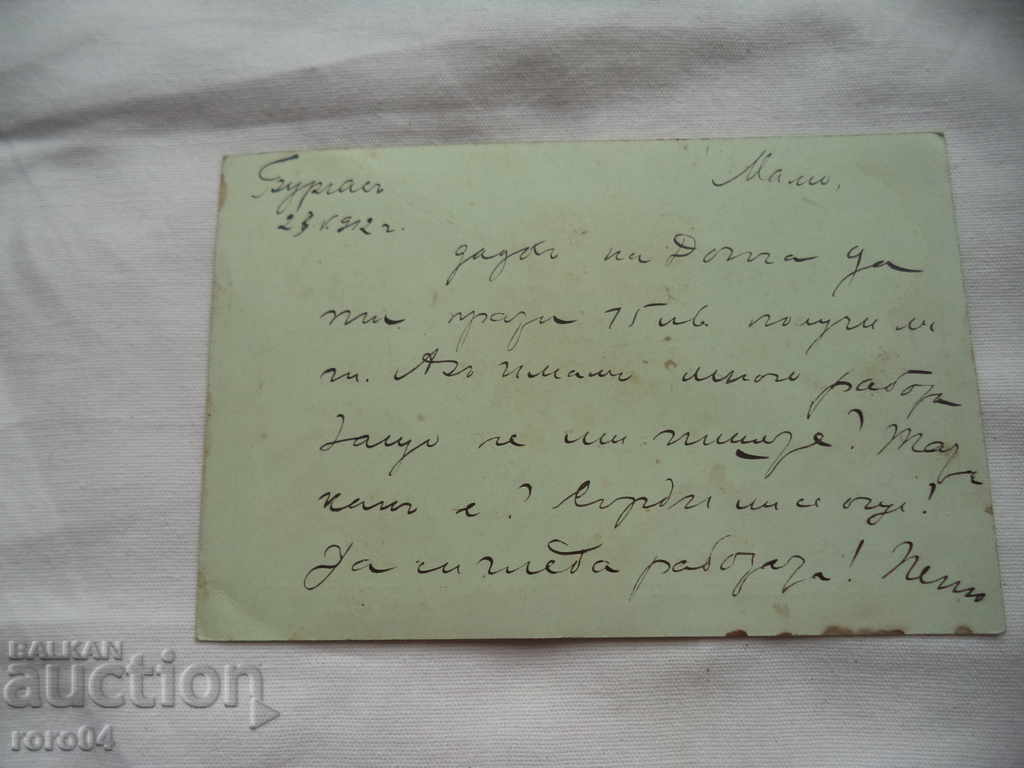 Бургасъ
Мамо,
23.V.912 г.
дадохъ на Донка да
ти прати 15 лв. получи ли
ги. Азъ имамъ много работа
Защо не ми пишете?
какъ е? Сърди ли се още!
Да си гледа работата! Петю
BALKAN
auction
roro04